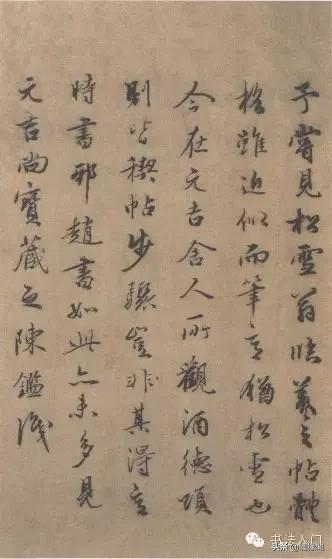 予嘗見松雪翁臨羲之帖體
格雖近似而筆意猶松雪也
今在元吉舍人所觀酒德頌
則皆稧帖步驟豈非其得意
時書邪趙書如此亦未多見
元吉尚寶藏之陳鑑識
书法入门